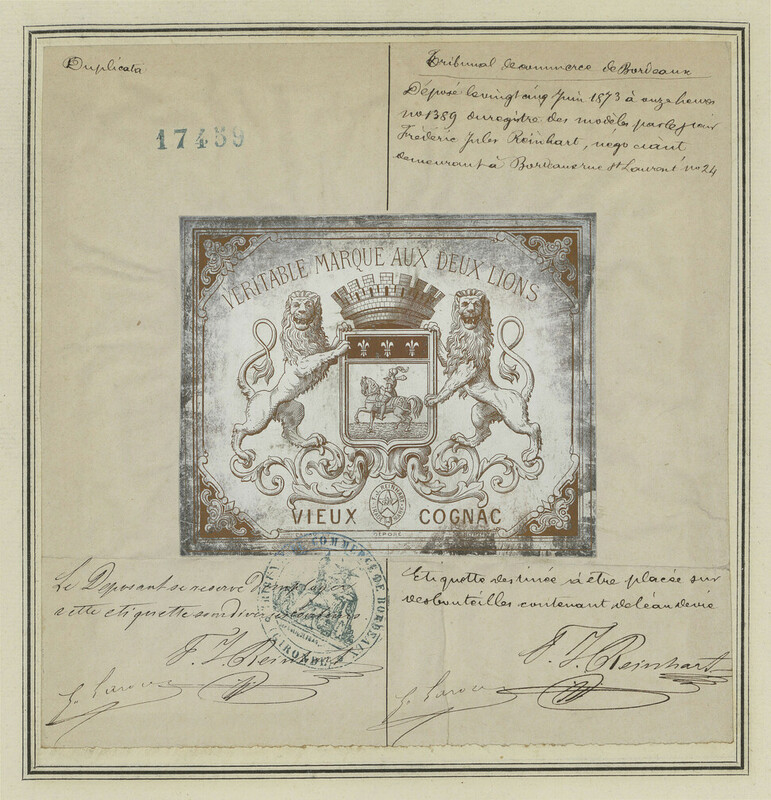 Duplicata
17459
Tribunal de commerce de Bordeaux
Déposé le vingt cinq Juin 1873 à onze heures
no 1389 du registre des modèles par le sieur
Frédéric Jules Reinhart, négociant
demeurant à Bordeaux rue St Laurent no 24
VÉRITABLE MARQUE AUX DEUX LIONS
VIEUX COGNAC
DÉPOSÉ
Le Déposant se réserve d'employer
cette etiquette son diverses couleurs
F. J. Reinhart
COMMERCE DE BORDEAUX
GIRONDE
Etiquette destinée à être placée sur
des bouteilles contenant de l'eau de vie
F. J. Reinhart